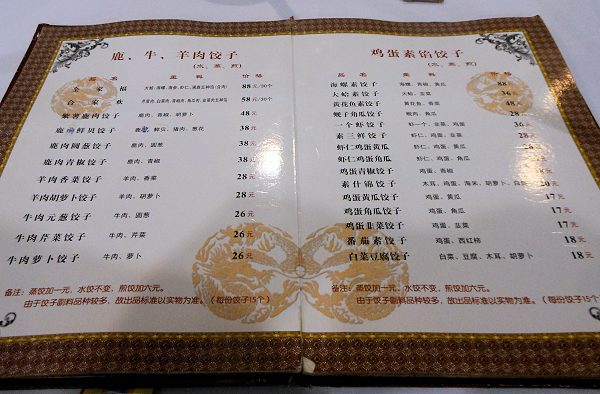 鹿、牛、羊肉饺子
(水、蒸、煎)
品名 主料 价格
全家福 大蛤、海螺、鲅鱼、虾仁、滑菇五种馅(合肉) 88元/30个
合家欢 58元/30个
紫薯鹿肉饺子 鹿肉、胡萝卜 48元
鹿 鲜贝饺子 鲜贝、猪肉、葱花 38元
鹿肉圆葱饺子 鹿肉、圆葱 38元
鹿肉青椒饺子 鹿肉、青椒 38元
羊肉香菜饺子 羊肉、香菜 28元
羊肉胡萝卜饺子 羊肉、胡萝卜 28元
牛肉元葱饺子 牛肉、圆葱 26元
牛肉芹菜饺子 牛肉、芹菜 26元
牛肉萝卜饺子 牛肉、萝卜 26元
备注：蒸饺加一元，水饺不变，煎饺加六元。
由于饺子副料品种较多，故出品标准以实物为准。（每份饺子15个）
鸡蛋素馅饺子
(水、蒸、煎)
品名 主料 价格
海螺素饺子 海螺、青椒、黄瓜 88元
大蛤素饺子 大蛤、韭菜 36元
黄花鱼素饺子 黄花鱼、香菜 48元
蚬子角瓜饺子 蚬肉、角瓜 28元
一个虾饺子 虾一个、韭菜、鸡蛋 36元
素三鲜饺子 虾仁、鸡蛋、韭菜 28元
虾仁鸡蛋黄瓜 虾仁、鸡蛋、黄瓜 28元
虾仁鸡蛋角瓜 虾仁、鸡蛋、角瓜 28元
鸡蛋青椒饺子 鸡蛋、青椒 18元
素什锦饺子 木耳、鸡蛋、海米、胡萝卜、白菜 20元
鸡蛋黄瓜饺子 鸡蛋、黄瓜 17元
鸡蛋角瓜饺子 鸡蛋、角瓜 17元
鸡蛋韭菜饺子 鸡蛋、韭菜 17元
番茄素饺子 鸡蛋、西红柿 18元
白菜豆腐饺子 白菜、豆腐、木耳、胡萝卜 18元
备注：蒸饺加一元，水饺不变，煎饺加六元。
由于饺子副料品种较多，故出品标准以实物为准。（每份饺子15个）